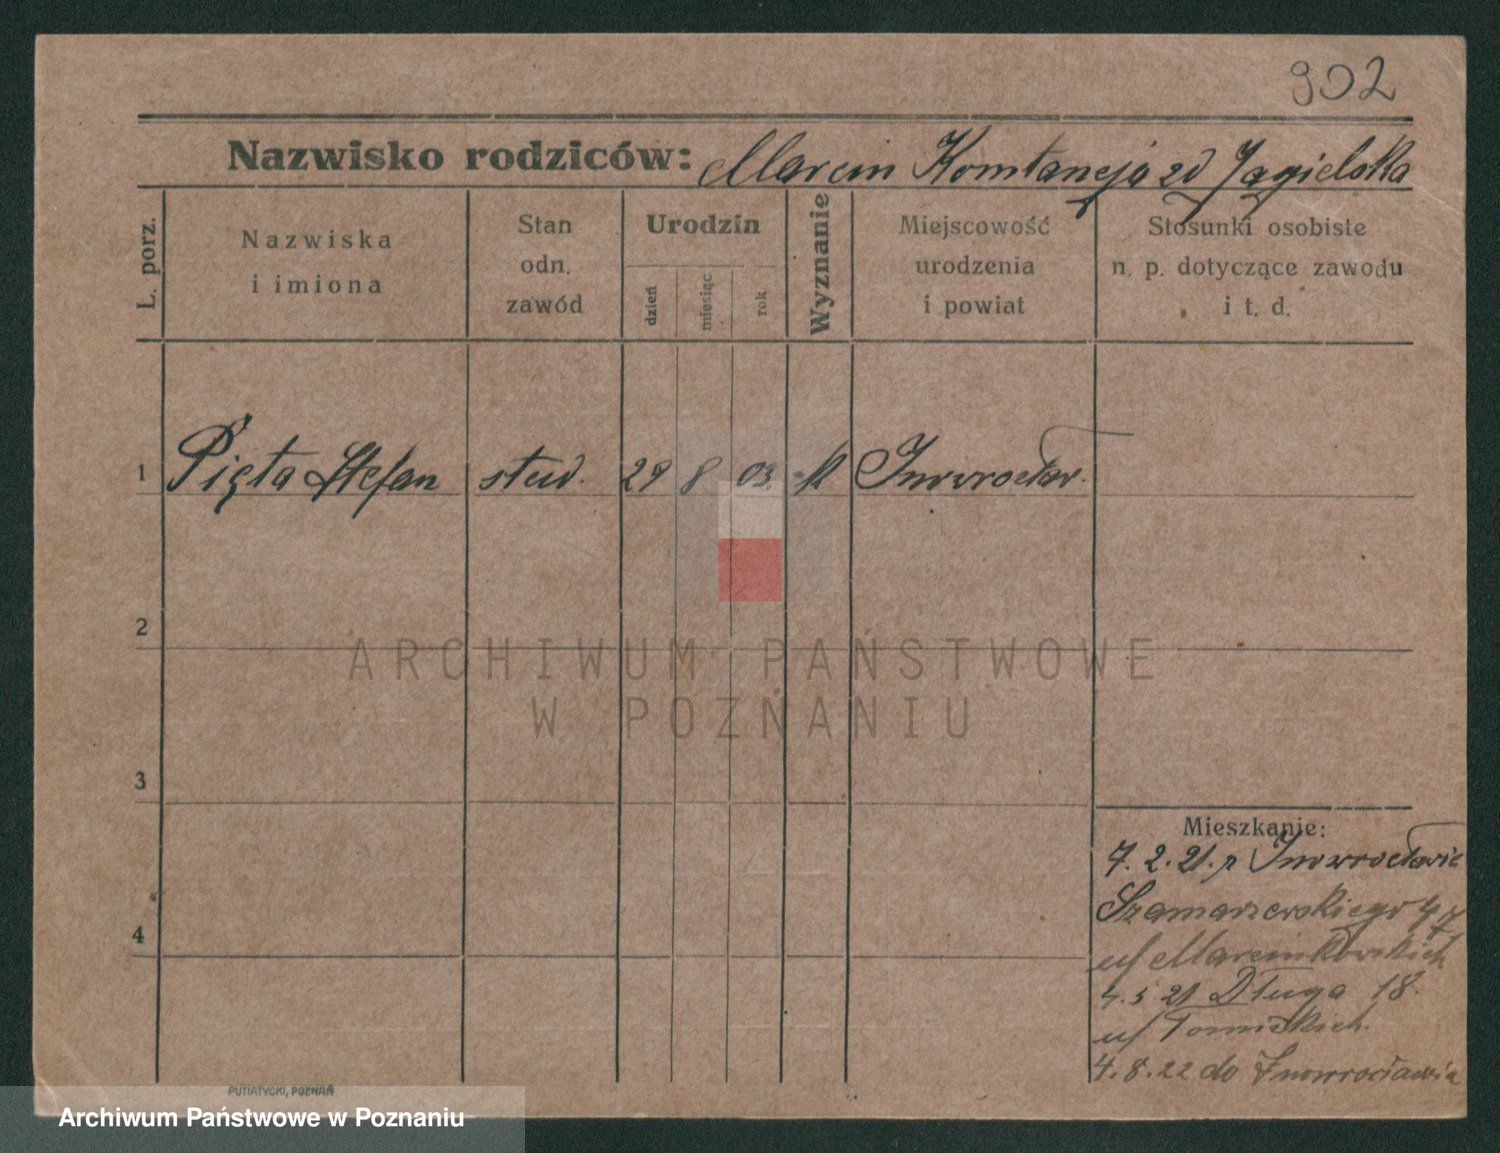 902
Nazwisko rodziców: Marcin Konstancja zd Jagielska
L. porz.
Nazwiska i imiona
Stan odn. zawód
Urodzin
dzień
miesiąc
rok
Wyznanie
Miejscowość urodzenia i powiat
Stosunki osobiste n. p. dotyczące zawodu i t. d.
1 Pięta Stefan stud. 29 8 03. k Inowrocław.
2
ARCHIWUM PAŃSTWOWE
W POZNANIU
3
Mieszkanie:
7. 2. 21. z Inowrocławia
Szamarzewskiego 47
4
u/ Marcinkowskich
4. 5 21 Długa 18.
u/ Tomickich.
4. 8. 22 do Inowrocławia
PUTIATYCKI, POZNAŃ
Archiwum Państwowe w Poznaniu